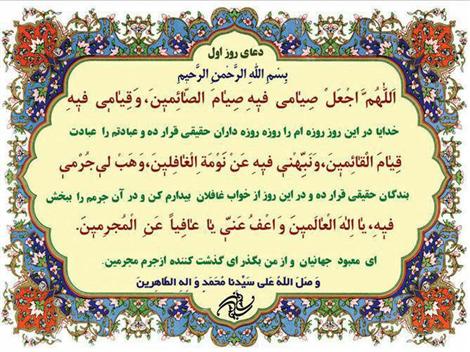 دعای روز اول
بِسْمِ اللهِ الرَّحْمنِ الرَّحیمِ
اَللّهُمَّ اجْعَلْ صِیامی فیهِ صِیامَ الصّائِمینَ، وَقِیامی فیهِ
خدایا در این روز روزه ام را روزه روزه داران حقیقی قرار ده و عبادتم را عبادت
قِیامَ الْقائِمینَ، وَنَبِّهْنی فیهِ عَنْ نَوْمَةِ الْغافِلینَ، وَهَبْ لی جُرْمی
بندگان حقیقی قرار ده و در این روز از خواب غافلان بیدارم کن و در آن جرمم را ببخش
فیهِ، یا اِلهَ الْعالَمینَ وَاعْفُ عَنّی یا عافِیاً عَنِ الْمُجرِمینَ.
ای معبود جهانیان و از من بگذر ای گذشت کننده ازجرم مجرمین.
وَ صَلَ اللهُ عَلی سَیِّدنا مُحَمَدٍ وَ الِهِ الطّاهِرینَ